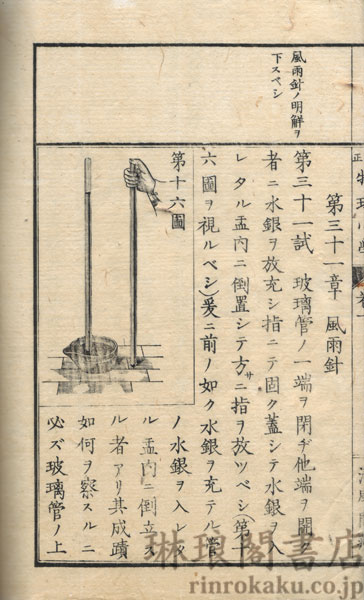 風雨針ノ明解ヲ
下スベシ
第三十一章 風雨針
第三十一試 玻璃管ノ一端ヲ閉ヂ他端ヲ開ク
者ニ水銀ヲ放充シ指ニテ固ク蓋シテ水銀ヲ入
レタル盂内ニ倒置シテ方サニ指ヲ放ツベシ(第十
六圖ヲ視ルベシ)爰ニ前ノ如ク水銀ヲ充テル管
ノ水銀ヲ入レタ
ル盂内ニ倒立ス
ル者アリ其成蹟
如何ヲ察スルニ
必ズ玻璃管ノ上
第十六圖
琳琅閣書店
rinrokaku.co.jp